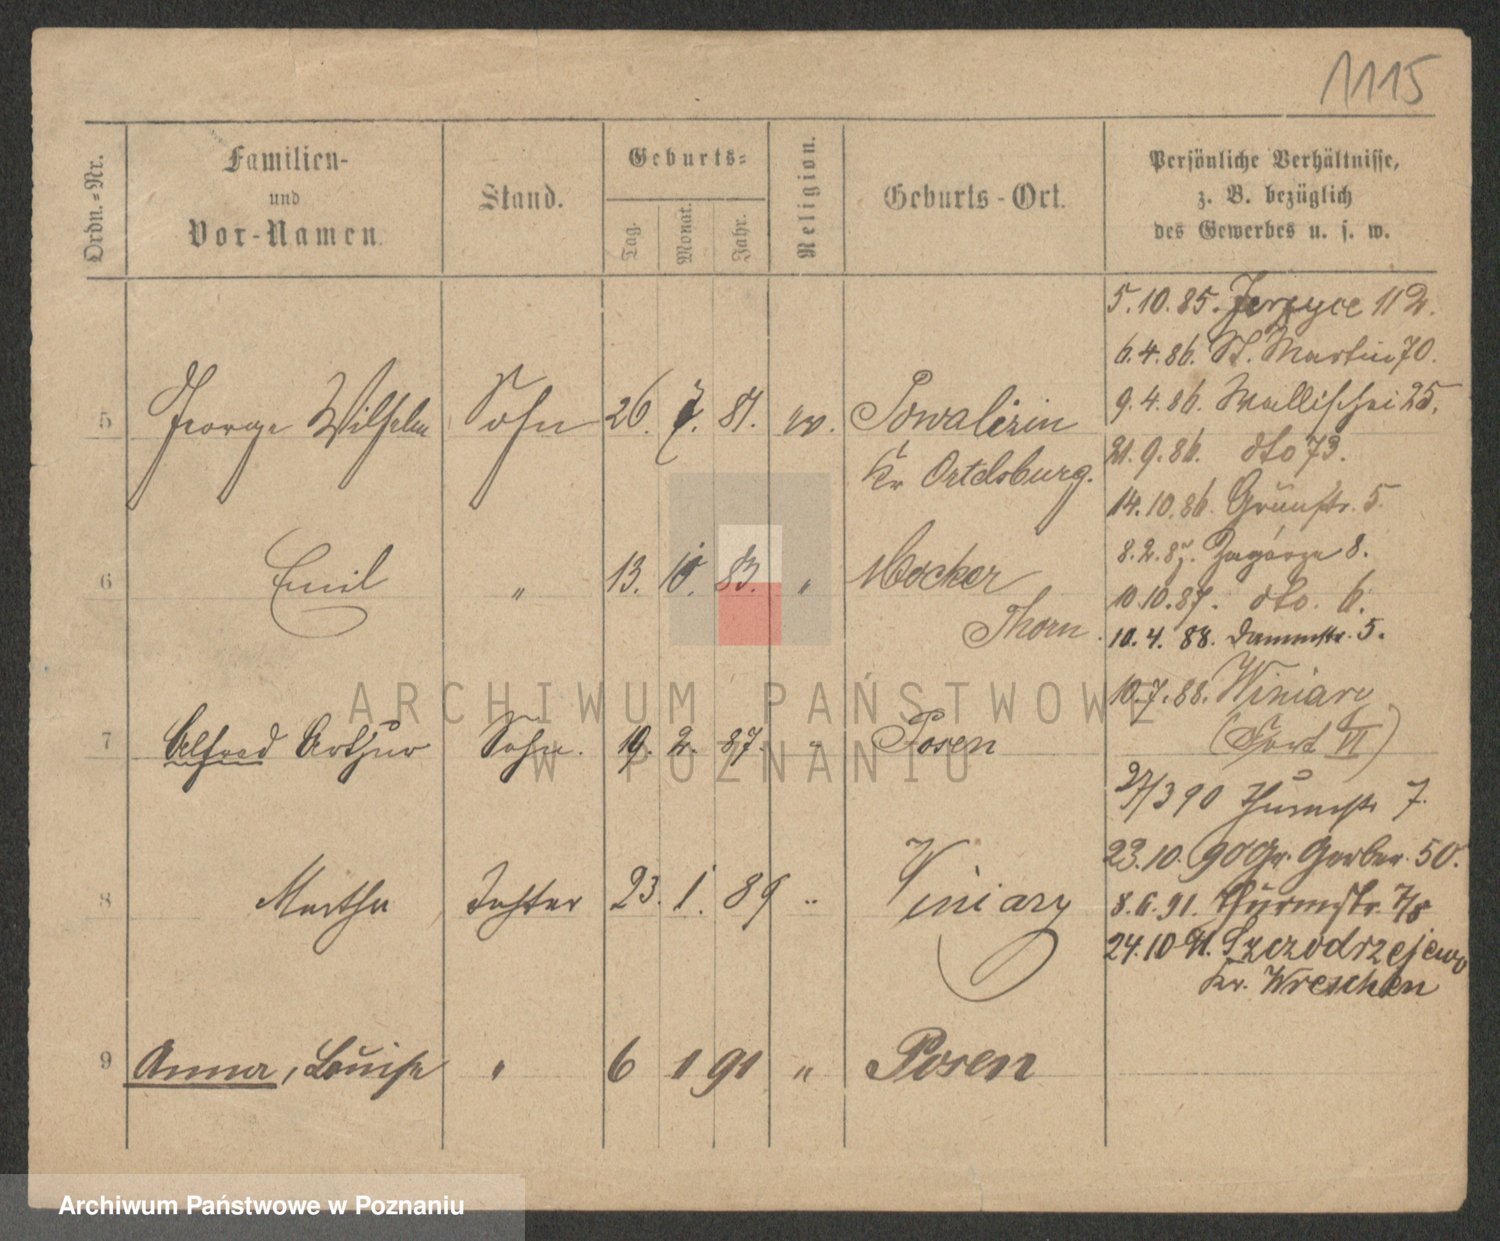 1115
Ordn.-Nr.
Familien-
und
Vor-Namen.
Stand.
Geburts-
Tag.
Monat.
Jahr.
Religion.
Geburts-Ort.
Persönliche Verhältnisse,
z. B. bezüglich
des Gewerbes u. s. w.
5 George Wilhelm Sohn 26. 7. 81. ev.
Kr Ortelsburg.
6 Emil " 13. 10. 83. " Mocker
Thorn.
7 Alfred Arthur Sohn. 19. 2. 87. " Posen
8 Martha Tochter 23. 1. 89 " Winiary
9 Anna, Louise " 6 1 91 " Posen
5.10.85. Jerzyce 112.
6.4.86. St. Martin 70.
9.4.86. Wallischei 25.
21.9.86. dto 73.
14.10.86. Grünstr. 5.
8.2.87. Zagórze 8.
10.10.87. dto. 6.
10.4.88. Dammstr. 5.
10.7.88. Winiary
(Fort VI)
27/3 90 Thurmstr 7.
23.10.90 Gr. Gerber. 50.
8.6.91. Thurmstr. 7/8
24.10.91. Szczodrzejewo
Kr. Wreschen
ARCHIWUM PAŃSTWOWE
W POZNANIU
Archiwum Państwowe w Poznaniu